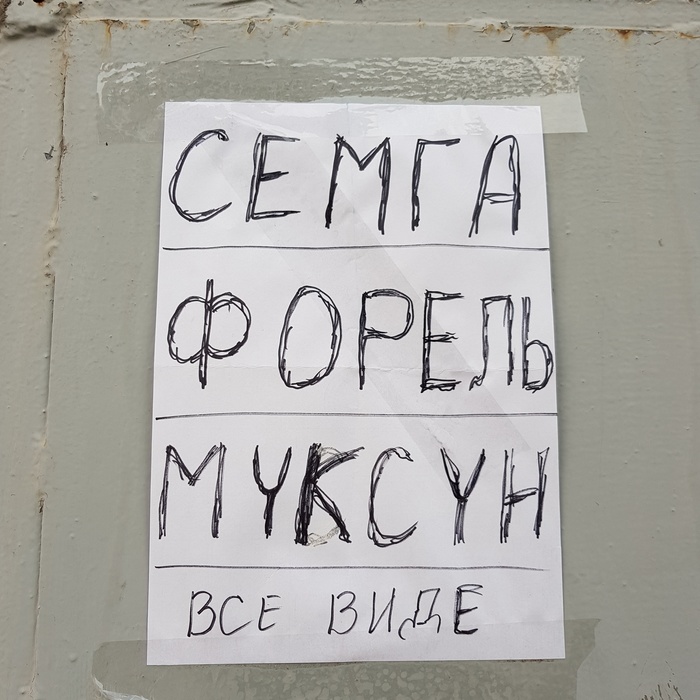 СЕМГА
ФОРЕЛЬ
МУКСУН
ВСЕ ВИДЕ